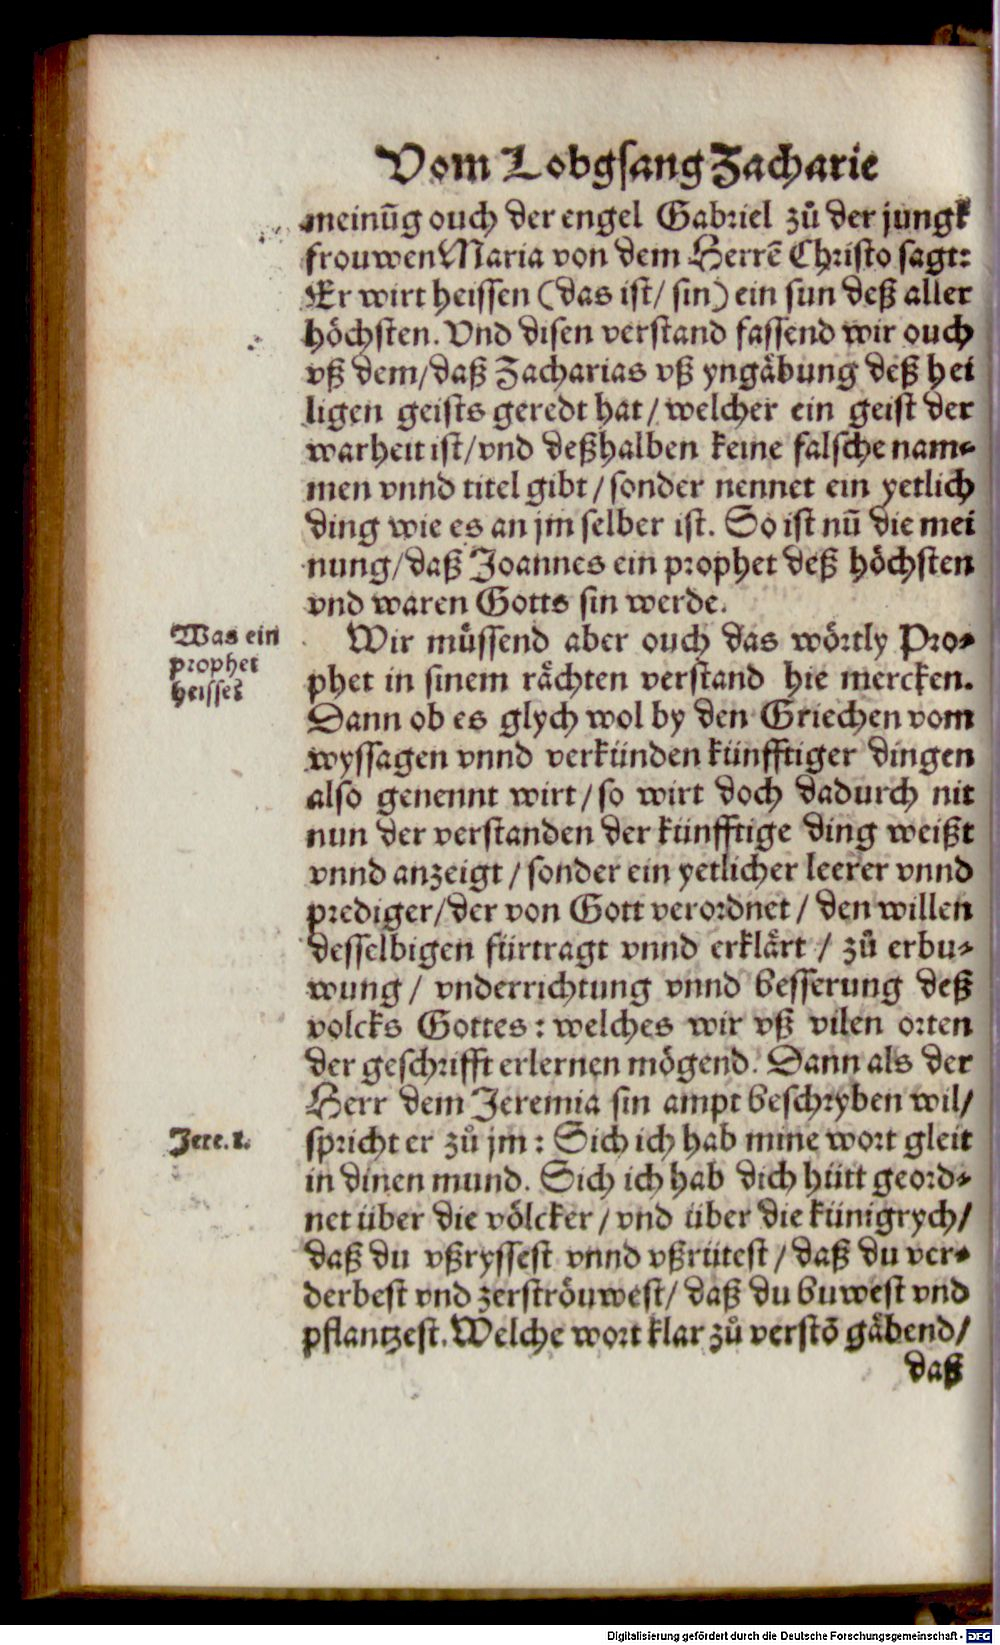 Vom Lobgsang Zacharie
meinūg ouch der engel Gabriel zů der jungk
frouwen Maria von dem Herrē Christo sagt:
Er wirt heissen (das ist/ sin) ein sun deß aller
höchsten. Vnd disen verstand fassend wir ouch
vß dem/daß Zacharias vß yngäbung deß hei
ligen geists geredt hat/welcher ein geist der
warheit ist/vnd deßhalben keine falsche nam⸗
men vnnd titel gibt/sonder nennet ein yetlich
ding wie es an jm selber ist. So ist nū die mei
nung/daß Joannes ein prophet deß höchsten
vnd waren Gotts sin werde.
Was ein
prophet
heisset
Wir müssend aber ouch das wörtly Pro⸗
phet in sinem rächten verstand hie mercken.
Dann ob es glych wol by den Griechen vom
wyssagen vnnd verkünden künfftiger dingen
also genennt wirt/so wirt doch dadurch nit
nun der verstanden der künfftige ding weißt
vnnd anzeigt/sonder ein yetlicher leerer vnnd
prediger/der von Gott verordnet/den willen
desselbigen fürtragt vnnd erklärt/ zů erbu⸗
wung/ vnderrichtung vnnd besserung deß
volcks Gottes: welches wir vß vilen orten
der geschrifft erlernen mögend. Dann als der
Herr dem Jeremia sin ampt beschryben wil/
Jere. 1.
spricht er zů jm: Sich ich hab mine wort gleit
in dinen mund. Sich ich hab dich hütt geord⸗
net über die völcker/vnd über die künigrych/
daß du vßryssest vnnd vßrütest/daß du ver⸗
derbest vnd zerströuwest/ daß du buwest vnd
pflantzest. Welche wort klar zů verstō gäbend/
daß
Digitalisierung gefördert durch die Deutsche Forschungsgemeinschaft - DFG